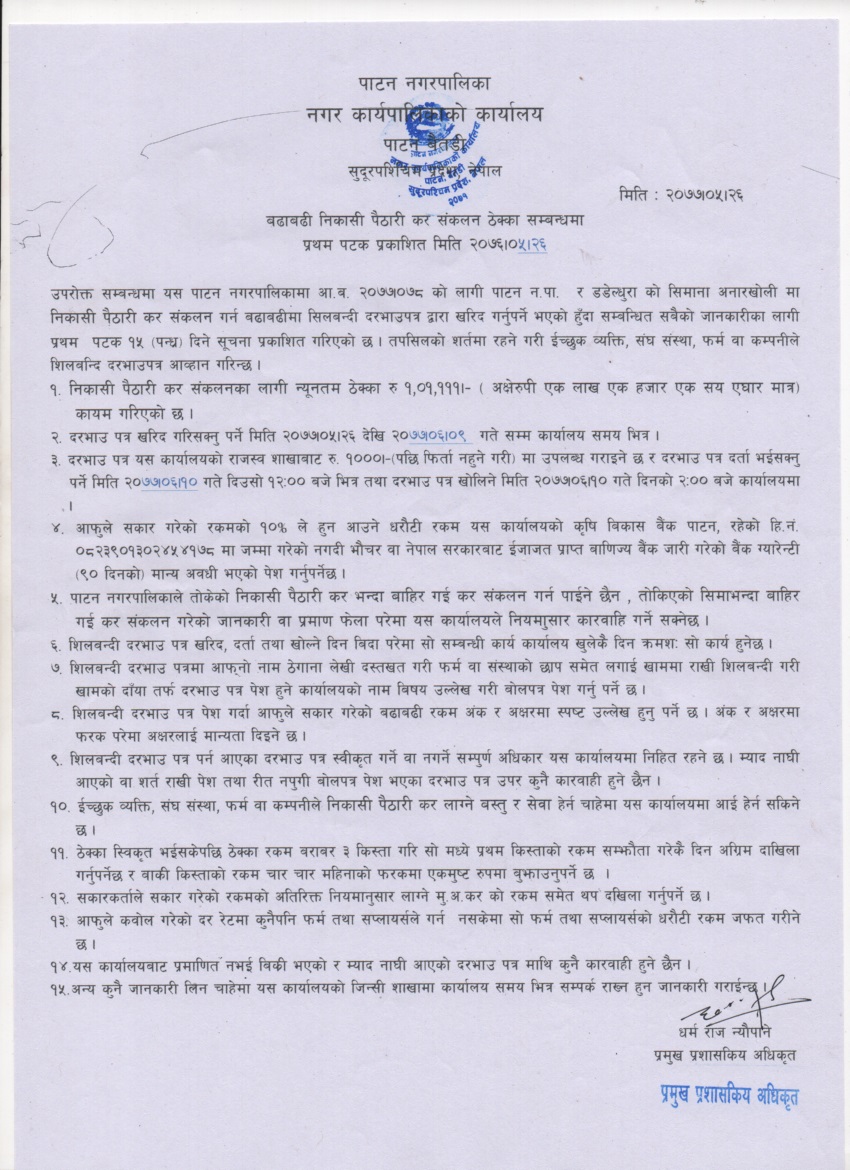 पाटन नगरपालिका
नगर कार्यपालिकाको कार्यालय
पाटन बैतडी
सुदूरपश्चिम प्रदेश, नेपाल
नगर कार्यपालिकाको कार्यालय
पाटन, बैतडी
सुदूरपश्चिम प्रदेश, नेपाल
२०७१
मिति : २०७७।०५।२६
बढाबढी निकासी पैठारी कर संकलन ठेक्का सम्बन्धमा
प्रथम पटक प्रकाशित मिति २०७६।०५।२६
उपरोक्त सम्बन्धमा यस पाटन नगरपालिकामा आ.ब. २०७७।०७८ को लागी पाटन न.पा. र डडेल्धुरा को सिमाना अनारखोली मा
निकासी पैठारी कर संकलन गर्न बढाबढीमा सिलबन्दी दरभाउपत्र द्वारा खरिद गर्नुपर्ने भएको हुँदा सम्बन्धित सबैको जानकारीका लागी
प्रथम पटक १५ (पन्ध्र) दिने सूचना प्रकाशित गरिएको छ । तपसिलको शर्तमा रहने गरी ईच्छुक व्यक्ति, संघ संस्था, फर्म वा कम्पनीले
शिलबन्दि दरभाउपत्र आव्हान गरिन्छ ।
१. निकासी पैठारी कर संकलनका लागी न्यूनतम ठेक्का रु १,०१,१११।- ( अक्षेरुपी एक लाख एक हजार एक सय एघार मात्र)
कायम गरिएको छ ।
२. दरभाउ पत्र खरिद गरिसक्नु पर्ने मिति २०७७।०५।२६ देखि २०७७।०६।०९ गते सम्म कार्यालय समय भित्र ।
३. दरभाउ पत्र यस कार्यालयको राजस्व शाखाबाट रु. १०००।-(पछि फिर्ता नहुने गरी) मा उपलब्ध गराइने छ र दरभाउ पत्र दर्ता भईसक्नु
पर्ने मिति २०७७।०६।१० गते दिउसो १२:०० बजे भित्र तथा दरभाउ पत्र खोलिने मिति २०७७।०६।१० गते दिनको २:०० बजे कार्यालयमा
।
४. आफुले सकार गरेको रकमको १०% ले हुन आउने धरौटी रकम यस कार्यालयको कृषि विकास बैंक पाटन, रहेको हि.नं.
०८२३९०१३०२४५४१७८ मा जम्मा गरेको नगदी भौचर वा नेपाल सरकारबाट ईजाजत प्राप्त बाणिज्य बैंक जारी गरेको बैंक ग्यारेन्टी
(९० दिनको) मान्य अवधी भएको पेश गर्नुपर्नेछ ।
५. पाटन नगरपालिकाले तोकेको निकासी पैठारी कर भन्दा बाहिर गई कर संकलन गर्न पाईने छैन , तोकिएको सिमाभन्दा बाहिर
गई कर संकलन गरेको जानकारी वा प्रमाण फेला परेमा यस कार्यालयले नियमाुसार कारवाहि गर्ने सक्नेछ ।
६. शिलबन्दी दरभाउ पत्र खरिद, दर्ता तथा खोल्ने दिन बिदा परेमा सो सम्बन्धी कार्य कार्यालय खुलेकै दिन क्रमशः सो कार्य हुनेछ ।
७. शिलबन्दी दरभाउ पत्रमा आफ्नो नाम ठेगाना लेखी दस्तखत गरी फर्म वा संस्थाको छाप समेत लगाई खाममा राखी शिलबन्दी गरी
खामको दाँया तर्फ दरभाउ पत्र पेश हुने कार्यालयको नाम बिषय उल्लेख गरी बोलपत्र पेश गर्नु पर्ने छ ।
८. शिलबन्दी दरभाउ पत्र पेश गर्दा आफुले सकार गरेको बढाबढी रकम अंक र अक्षरमा स्पष्ट उल्लेख हुनु पर्ने छ । अंक र अक्षरमा
फरक परेमा अक्षरलाई मान्यता दिइने छ ।
९. शिलबन्दी दरभाउ पत्र पर्न आएका दरभाउ पत्र स्वीकृत गर्ने वा नगर्ने सम्पुर्ण अधिकार यस कार्यालयमा निहित रहने छ । म्याद नाघी
आएको वा शर्त राखी पेश तथा रीत नपुगी बोलपत्र पेश भएका दरभाउ पत्र उपर कुनै कारवाही हुने छैन ।
१०. ईच्छुक व्यक्ति, संघ संस्था, फर्म वा कम्पनीले निकासी पैठारी कर लाग्ने बस्तु र सेवा हेर्न चाहेमा यस कार्यालयमा आई हेर्न सकिने
छ ।
११. ठेक्का स्विकृत भईसकेपछि ठेक्का रकम बराबर ३ किस्ता गरि सो मध्ये प्रथम किस्ताको रकम सम्झौता गरेकै दिन अग्रिम दाखिला
गर्नुपर्नेछ र वाकी किस्ताको रकम चार चार महिनाको फरकमा एकमुष्ट रुपमा बुझाउनुपर्ने छ ।
१२. सकारकर्ताले सकार गरेको रकमको अतिरिक्त नियमानुसार लाग्ने मु.अ.कर को रकम समेत थप दखिला गर्नुपर्ने छ ।
१३. आफुले कवोल गरेको दर रेटमा कुनैपनि फर्म तथा सप्लायर्सले गर्न नसकेमा सो फर्म तथा सप्लायर्सको धरौटी रकम जफत गरीने
छ ।
१४.यस कार्यालयबाट प्रमाणित नभई बिकी भएको र म्याद नाघी आएको दरभाउ पत्र माथि कुनै कारवाही हुने छैन ।
१५.अन्य कुनै जानकारी लिन चाहेमा यस कार्यालयको जिन्सी शाखामा कार्यालय समय भित्र सम्पर्क राख्न हुन जानकारी गराईन्छ ।
धर्म राज न्यौपाने
प्रमुख प्रशासकिय अधिकृत
प्रमुख प्रशासकिय अधिकृत